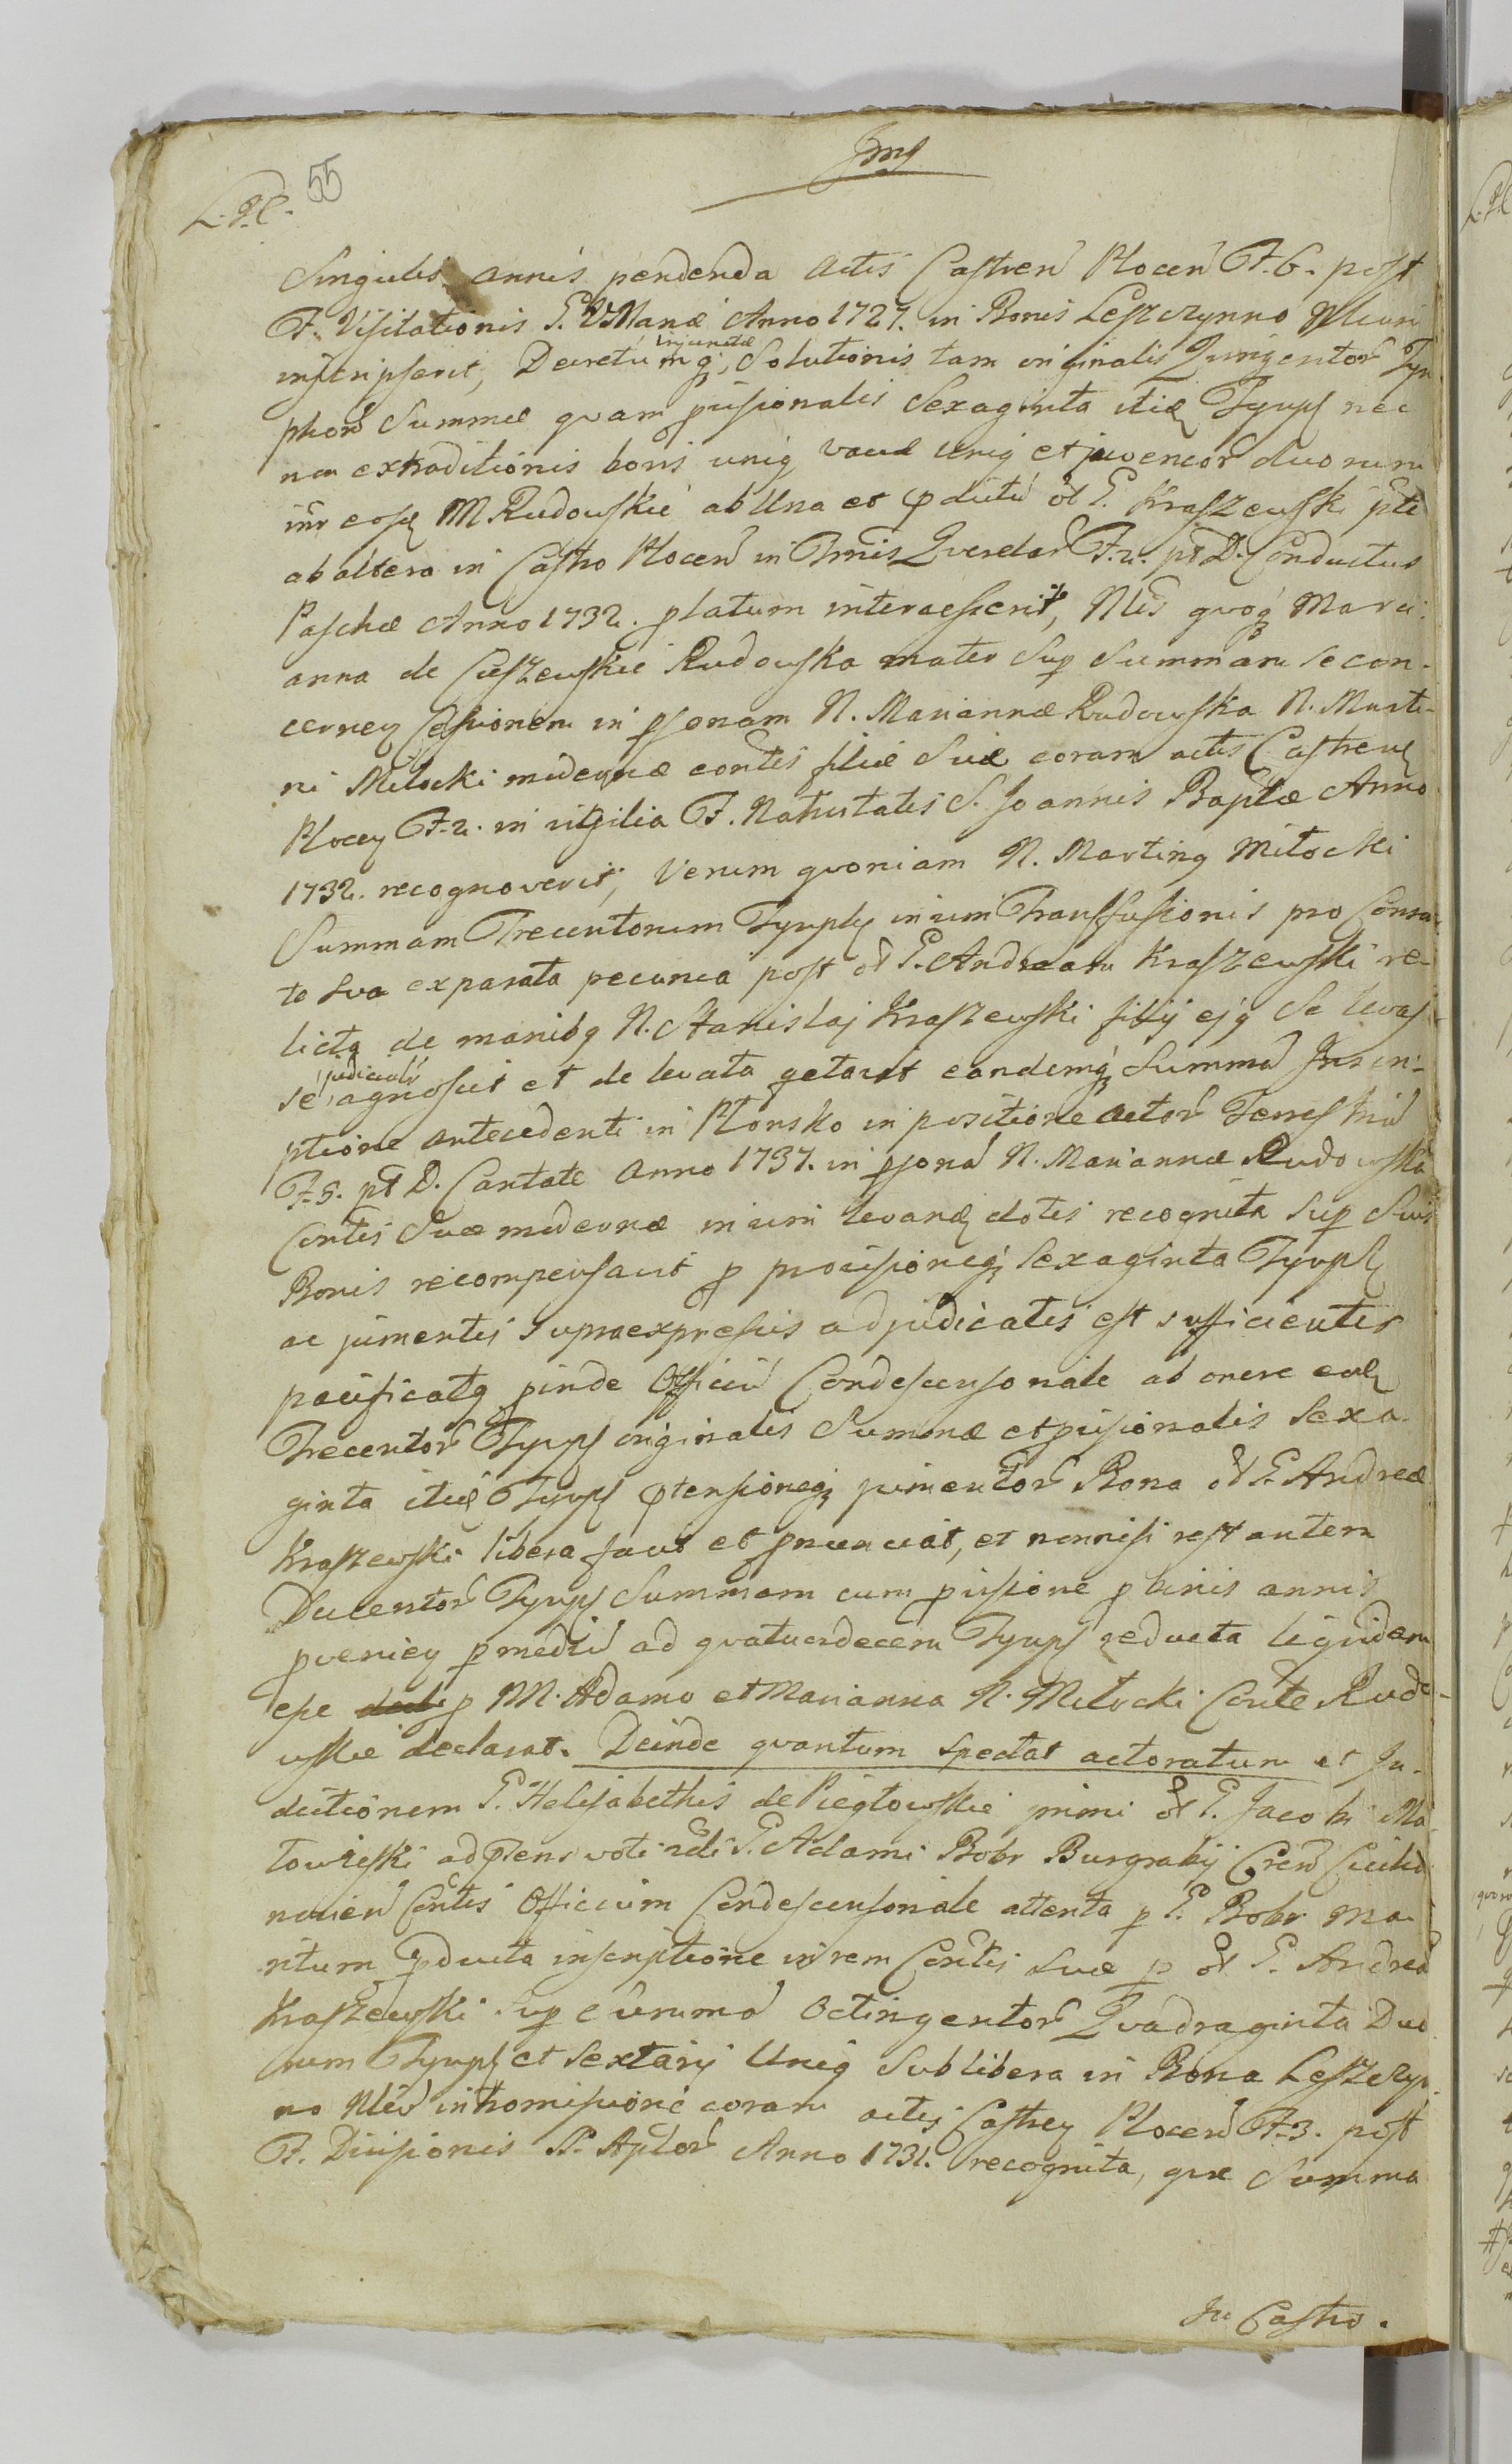 55
L. P. C.
Singulis annis pendenda Actis Castren Plocen F. 6. post
F. Visitationis S. V. Mariæ Anno 1727. in Bonis Leszczynno
inscripserit, Decretum injunctæ Solutionis tam originalis Quingentor Tym
phor Summæ quam pvisionalis Sexaginta itid Tympf nec
non extraditionis bovis unig vaccæ unig et juvencor duorum
inr eosd M Rudowskie ab Una et olim G. Kraszewski pte
ab altera in Castro Plocen in Trmis Querelar F. 2. pt D. Conductus
Paschæ Anno 1732. platum intercesserit, Nlis quoq Mari
anna de Cieszewskie Rudowska mater Sup Summam se con-
cernen Cessionem in psonam N. Mariannæ Rudowska N. Marti-
ni Miłocki modernæ contis filiæ Suæ coram actis Castren
Plocen F. 2. in vigilia F. Nativitatis S. Joannis Baptæ Anno
1732. recognoverit, Verum quoniam N. Marting Miłocki
Summam Trecentorum Tympf in vim Transfusionis pro Consor
te Sua exparata pecunia post ol G. Andream Kraszewski re
licta de manibg N. Stanislai Kraszewski filij ejg Se levas
se judicialr agnoscit et de levata qetavit eandemq Summa Inscri-
ptione antecedenti in Płonsko in positione actor Terrestriu
F. 5. pt D. Cantate Anno 1737. in psona N. Mariannæ Rudowska
Contis Suæ modernæ in vim levandæ dotis recognita Sup Suis
Bonis recompensavit p provisioneq Sexaginta Tympf
ac jumentis supraexpressis adjudicatis est sufficienter
pacificatg pinde Officiu Condescensionale ab onere eor
Trecentor Tympf originalis Summæ et pvisionalis Sexa
ginta itid Tympf ptensioneq jumentor Bona ol G. Andreæ
Kraszewski libera facit et pnunciat, et nonnisi restantem
Ducentor Tympf Summam cum pvisione p binis annis
pvenien p mediu ad quatuordecem Tympf reducta liquidam
esse p M. Adamo et Marianna N. Miłocki Conte Rudo-
wskie declarat. Deinde quantum spectat actoratum et In-
ductionem G. Helisabethis de Piegłowskie primi ol G. Jacobi Ma
towieski ad pæns voti 2di G. Adami Bobr Burgrabij Cren Ciecha
novien Contis Officium Condescensionale attenta p G. Bobr ma
ritum pducta inscriptione in rem Contis Suæ p ol G. Andrea
Kraszewski Sup Summa Octingentor Quadraginta Duo
rum Tympf et Sextarij Unig Sub libera in Bona Leszczyn
no Nlem intromissione coram actis Castren Plocen F. 3. post
F. Divisionis SS. Aptor Anno 1731. recognita, quæ Summa
In Castro.